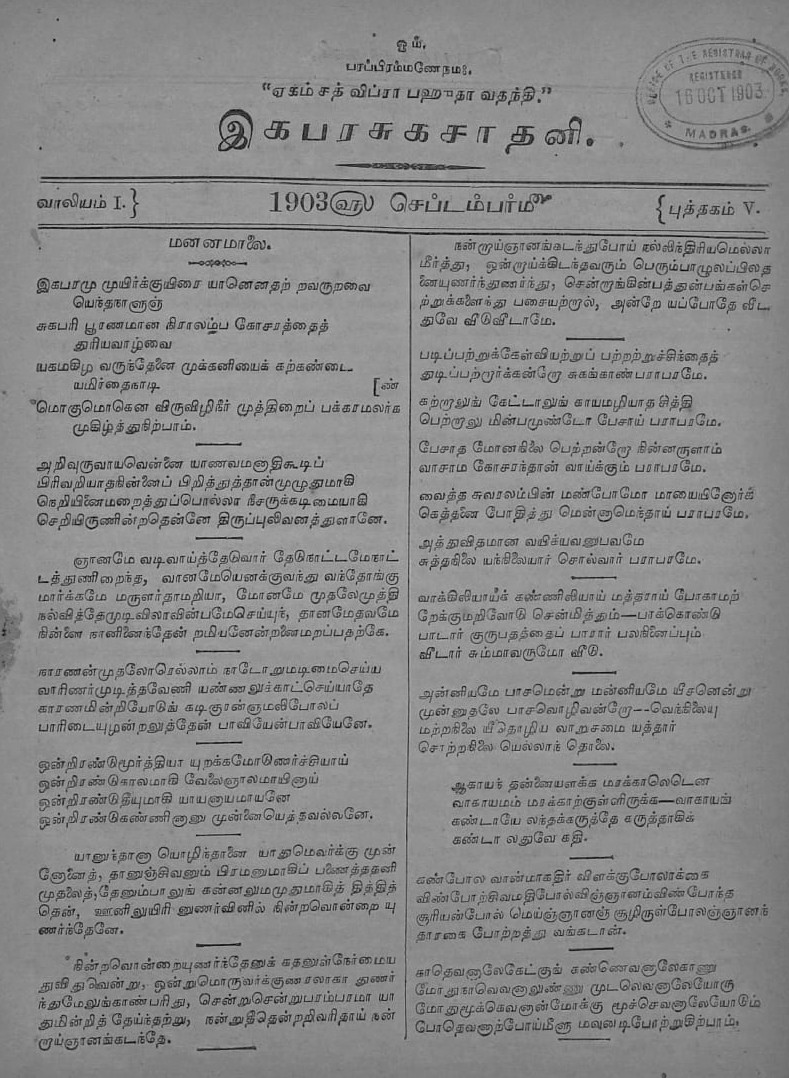 ஓம்.
பரப்பிரம்மணேநம:,
"ஏகம் சத் விப்ரா பஹுதா வதந்தி."
இகபரசுகசாதனி.
OFFICE OF THE REGISTRAR OF BOOKS
REGISTERED
16 OCT 1903
MADRAS
வாலியம் I.}
1903௵ செப்டம்பர்௴
{புத்தகம் V.
மனனமாலை.
இகபரமு முயிர்க்குயிரை யானெனதற் றவருறவை
யெந்தநாளுஞ்
சுகபரி பூரணமான நிராலம்ப கோசரத்தைத்
துரியவாழ்வை
யகமகிழ வருந்தேனை முக்கனியைக் கற்கண்டை
யமிர்தைநாடி [ண்
மொகுமொகென விருவிழிநீர் முத்திறைப் பக்காமலர்க
முகிழ்த்துநிற்பாம்.
அறிவுருவாயவென்னை யாணவமனாதிகூடிப்
பிரிவறியாதநின்னைப் பிறித்துத்தான்முழுதுமாகி
நெறியினைமறைத்துப்பொல்லா நீசருக்கடிமையாகி
செறியிருணின்றதென்னே திருப்புலிவனத்துளானே.
ஞானமே வடிவாய்த்தேடுவார் தேடுநாட்டமேநாட்
டத்துணிறைந்த, வானமேயெனக்குவந்து வந்தோங்கு
மார்க்கமே மருளர்தாமறியா, மோனமே முதலேமுத்தி
நல்வித்தேமுடிவிலாவின்பமேசெய்யுந், தானமேதவமே
நின்னை நானினைந்தேன் றமியனேன்றனைமறப்பதற்கே.
நாரணன்முதலோரெல்லாம் நாடோறுமடிமைசெய்ய
வாரிணர்முடித்தவேணி யண்ணலுக்காட்செய்யாதே
காரணமின்றியோடுங் கடிகுரன்ஞமலிபோலப்
பாரிடையுழன்றலுத்தேன் பாவியேன்பாவியேனே.
ஒன்றிரண்டுமூர்த்தியா யுறக்கமோடுணர்ச்சியாய்
ஒன்றிரண்டுகாலமாகி வேலைஞாலமாயினாய்
ஒன்றிரண்டுதீயுமாகி யாயனாயமாயனே
ஒன்றிரண்டுகண்ணினானு முன்னையெத்தவல்லனே.
யானுந்தானா யொழிந்தானை யாதுமெவர்க்கு முன்
னோனைத், தானுஞ்சிவனும் பிரமனுமாகிப் பணைத்ததனி
முதலைத்,தேனும்பாலுங் கன்னலுமமுதுமாகித் தித்தித்
தென், ஊனிலுயிரி னுணர்வினில் நின்றவொன்றை யு
ணர்ந்தேனே.
நின்றவொன்றையுணர்ந்தேனுக் கதனுள்நேர்மைய
துவிதுவென்று, ஒன்றுமொருவர்க்குணரலாகா துணர்
ந்துமேலுங்காண்பரிது, சென்றுசென்றுபரம்பரமா யா
துமின்றித் தேய்ந்தற்று, நன்றுதீதென்றறிவரிதாய் நன்
றாய்ஞானங்கடந்தே.
நன்றாய்ஞானங்கடந்துபோய் நல்லிந்திரியமெல்லா
மீர்த்து, ஒன்றாய்க்கிடந்தவரும் பெரும்பாழுலப்பிலத
னையுணர்ந்துணர்ந்து, சென்றாங்கின்பத்துன்பங்கள்செ
ற்றுக்களைந்து பசையற்றால், அன்றே யப்போதே வீட
துவே வீடுவீடாமே.
படிப்பற்றுக்கேள்வியற்றுப் பற்றற்றுச்சிந்தைத்
துடிப்பற்றார்க்கன்றோ சுகங்காண்பராபரமே.
கற்றாலுங் கேட்டாலுங் காயமழியாத சித்தி
பெற்றாலு மின்பமுண்டோ பேசாய் பராபரமே.
பேசாத மோனநிலை பெற்றன்றோ நின்னருளாம்
வாசாம கோசரந்தான் வாய்க்கும் பராபரமே.
வைத்த சுவரலம்பின் மண்போமோ மாயையினோர்க்
கெத்தனை போதித்து மென்னாமெந்தாய் பராபரமே.
அத்துவிதமான வயிக்யவனுபவமே
சுத்தநிலை யந்நிலையார் சொல்வார் பராபரமே.
வாக்கிலியாய்க் கண்ணிலியாய் மத்தராய் போகாமற்
றேக்குமறிவோடு சென்மித்தும்—பாக்கொண்டு
பாடார் குருபதத்தைப் பாரார் பலநினைப்பும்
வீடார் சும்மாவருமோ வீடு.
அன்னியமே பாசமென்று மன்னியமே யீசனென்று
முன்னுதலே பாசவொழிவன்றோ--வெந்நிலையு
மற்றநிலை யீதொழிய வாறாசமை யத்தார்
சொற்றநிலை யெல்லாந் தொலை.
ஆகாயந் தன்னையளக்க மரக்காலெடென
வாகாயமம் மரக்காற்குள்ளிருக்க—வாகாயங்
கண்டாயே லந்தக்கருத்தே கருத்தாகிக்
கண்டா லதுவே கதி.
கண்போல வான்மாகதிர் விளக்குபோலாக்கை
விண்போற்சிவமதிபோல்விஞ்ஞானம்விண்போந்த
சூரியன்போல் மெய்ஞ்ஞானஞ் சூழிருள்போலஞ்ஞானந்
தாரகை போற்றத்து வங்கடான்.
காதெவனாலேகேட்குங் கண்ணெவனாலேகாணு
மோதுநாவெவனாலுண்ணு முடலெவனாலேயோரு
மோதுமூக்கெவனான்மோக்கு மூச்செவனாலேயோடும்
போதெவனாற்போய்மீளு மவுனடிபோற்றுகிற்பாம்.